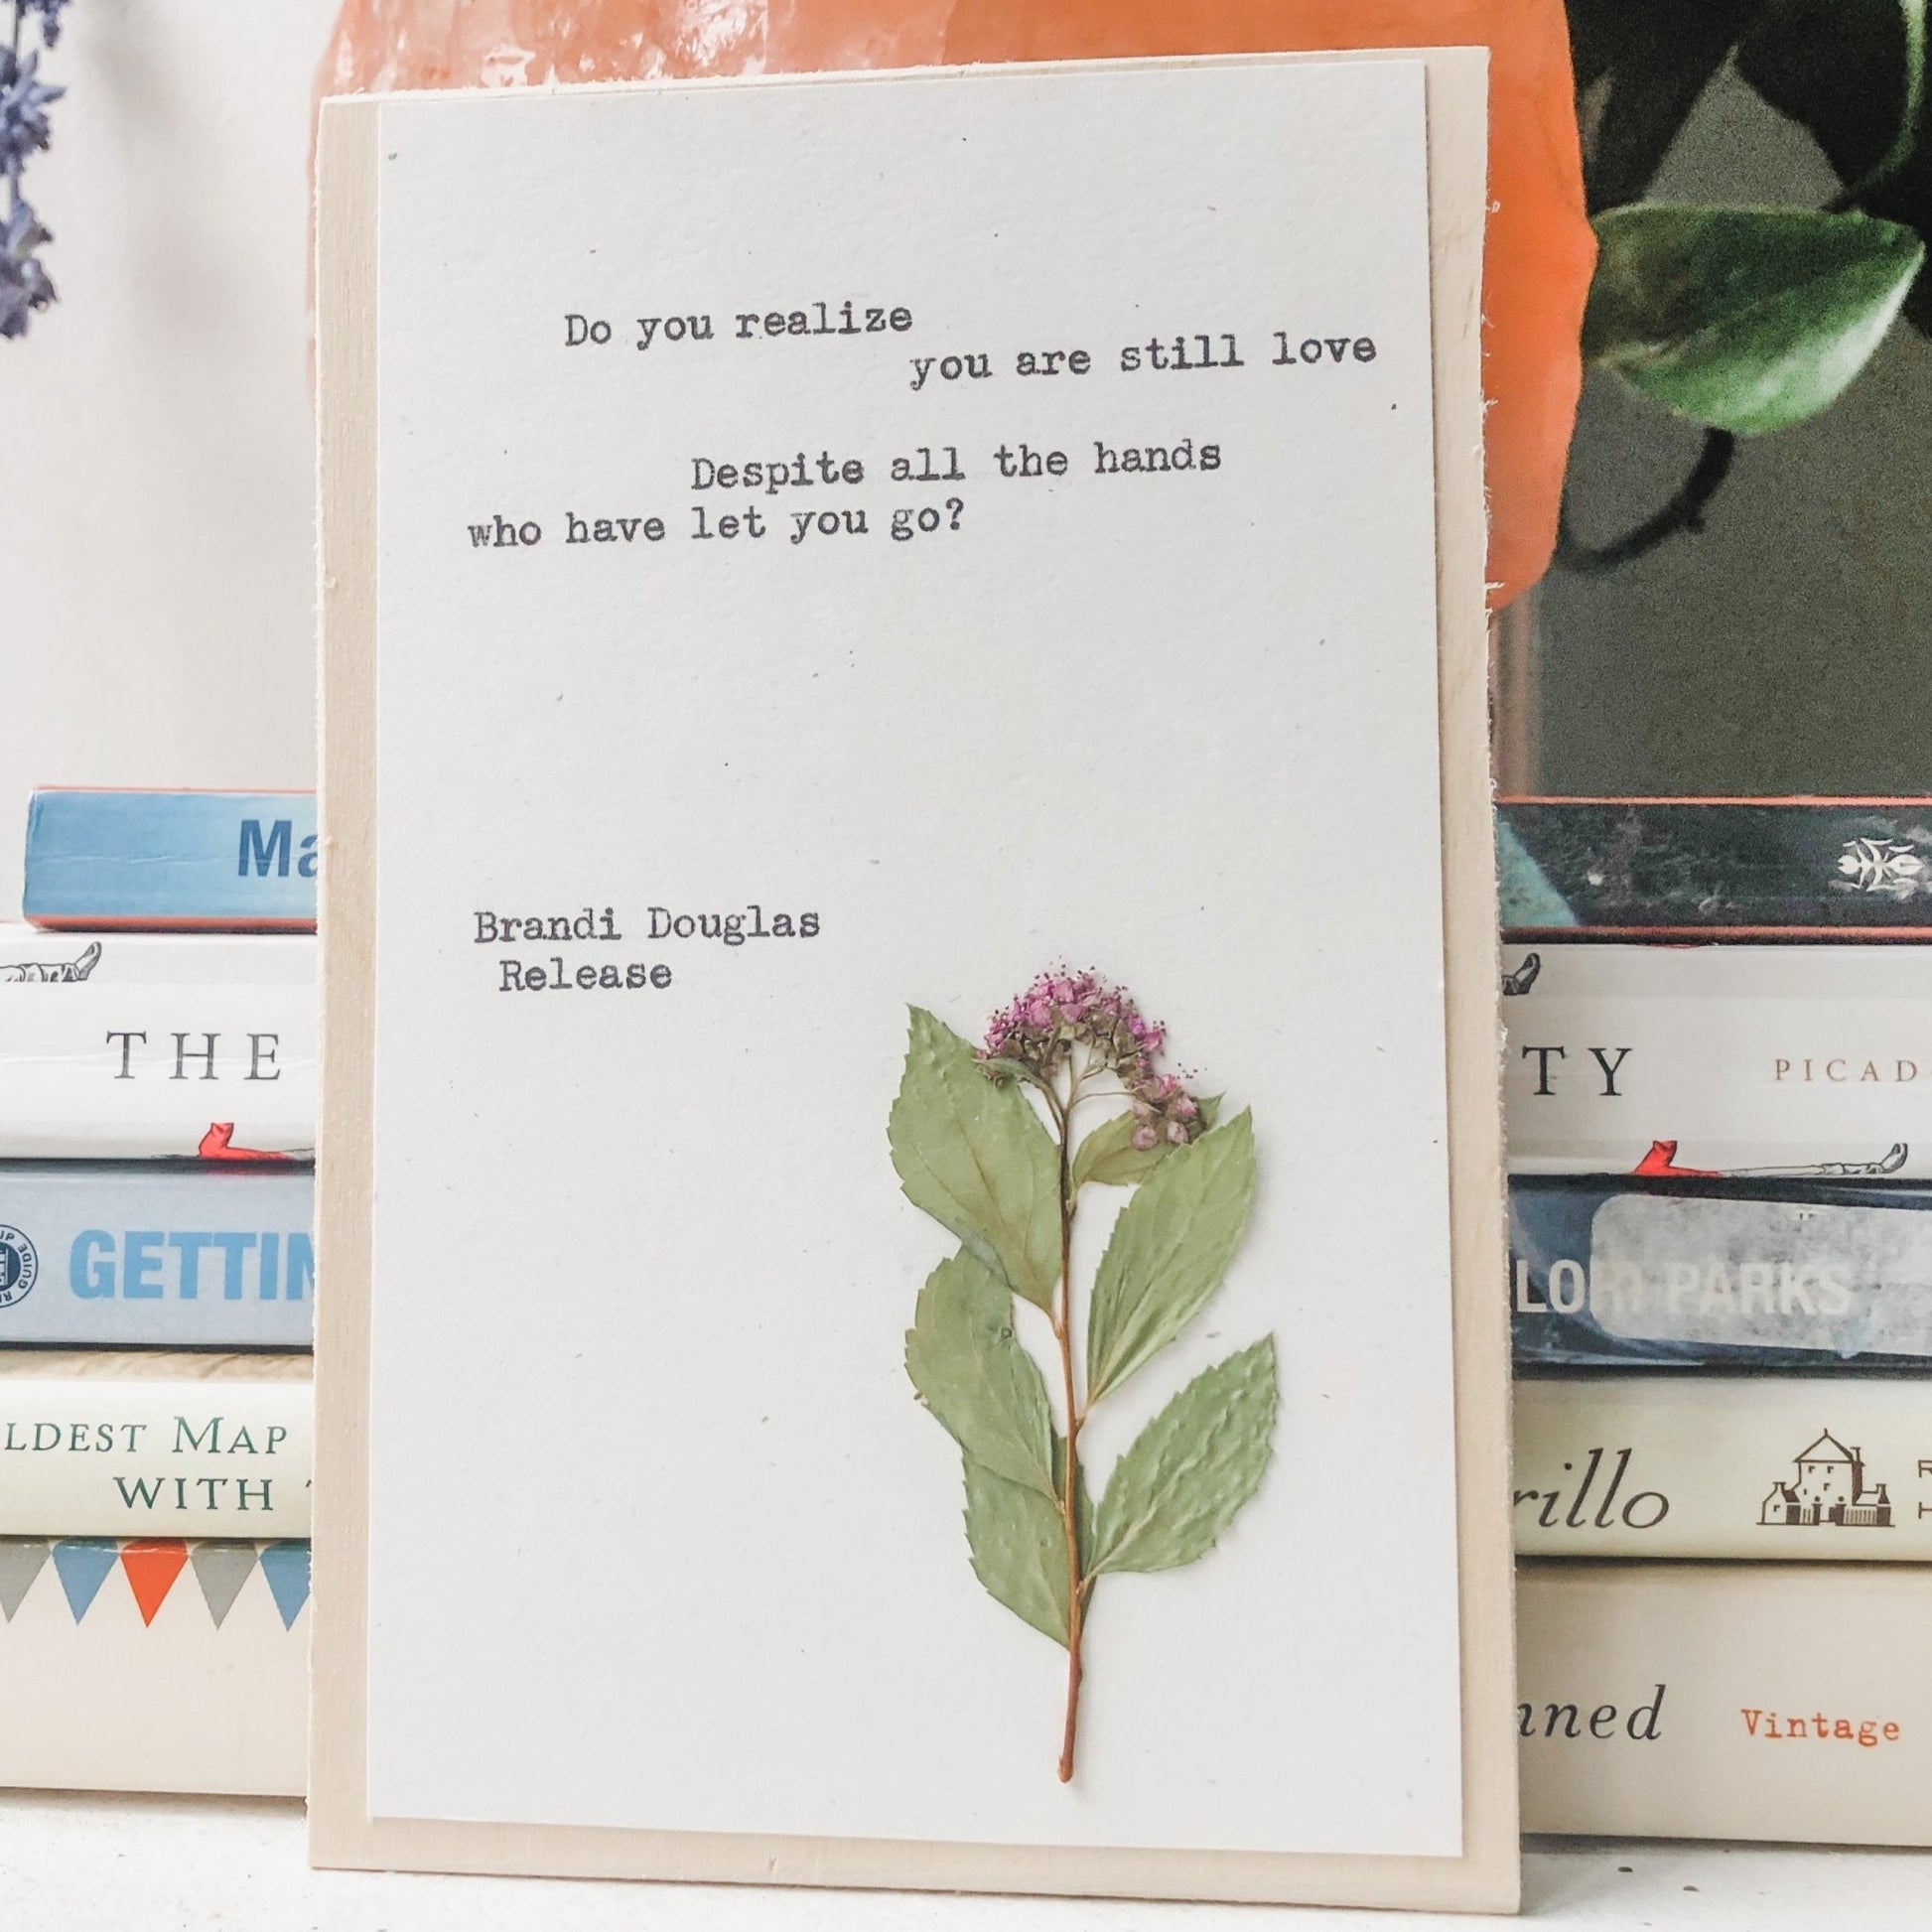 Do you realize
you are still love
Despite all the hands
who have let you go?
Brandi Douglas
Release
Ma
THE
TY PICAD
GETTIN
LORI PARKS
LDEST MAP
WITH
rillo
R
H
nned
Vintage